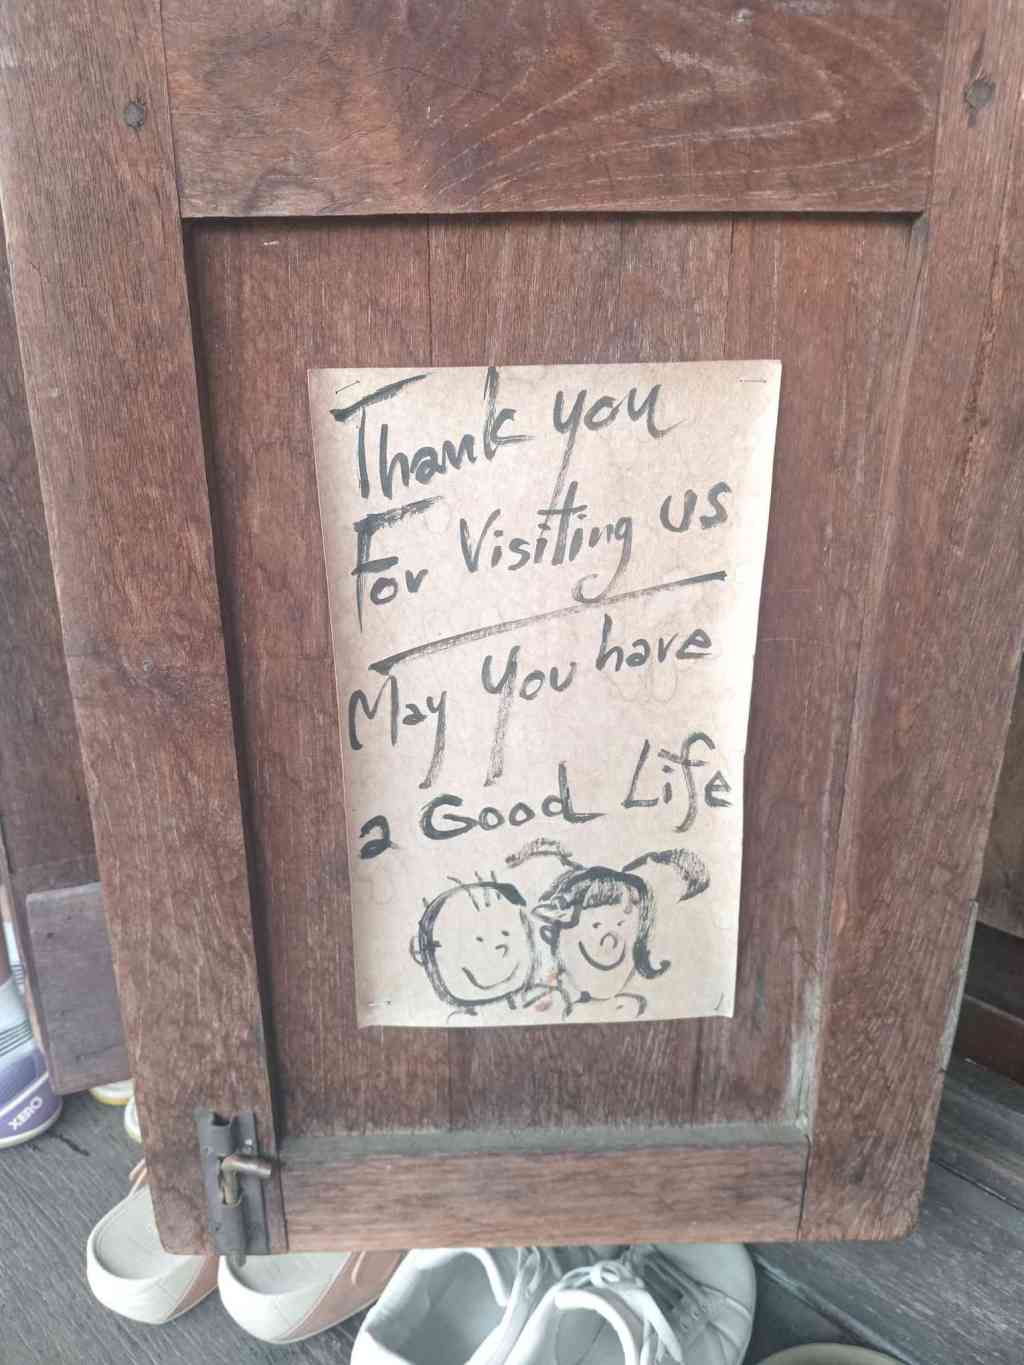 Thank you
For Visiting us
May You have
a Good Life